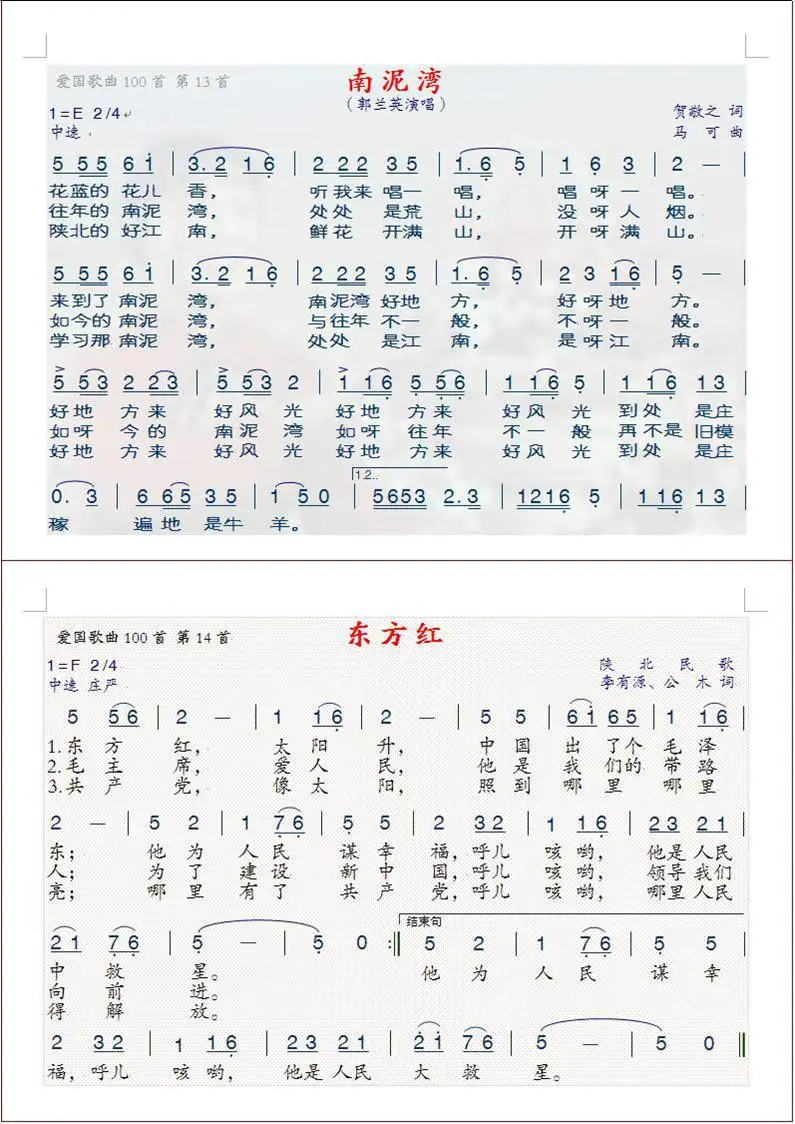 爱国歌曲 100 首 第 13 首
南泥湾
（郭兰英演唱）
1=E 2/4
贺敬之 词
中速
马 可 曲
5 55 6 i | 3. 2 1 6 | 2 22 3 5 | 1. 6 5 | 1 6 3 | 2 — |
花蓝的 花儿 香， 听我来 唱一 唱， 唱 呀 一 唱。
往年的 南泥 湾， 处处 是荒 山， 没 呀 人 烟。
陕北的 好江 南， 鲜花 开满 山， 开 呀 满 山。
5 55 6 i | 3. 2 1 6 | 2 22 3 5 | 1. 6 5 | 2 3 1 6 | 5 — |
来到了 南泥 湾， 南泥湾 好地 方， 好 呀 地 方。
如今的 南泥 湾， 与往年 不一 般， 不 呀 一 般。
学习那 南泥 湾， 处处 是江 南， 是 呀 江 南。
> > >
5 53 2 23 | 5 53 2 | 1 16 5 56 | 1 16 5 | 1 16 1 3 |
好地 方来 好风 光 好地 方来 好风 光 到处 是庄
如呀 今的 南泥 湾 如呀 往年 不一 般 再不是 旧模
好地 方来 好风 光 好地 方来 好风 光 到处 是庄
1.2..
0. 3 | 6 65 3 5 | 1 5 0 | 5653 2. 3 | 1216 5 | 1 16 1 3 |
稼 遍地 是牛 羊。
爱国歌曲 100 首 第 14 首
东方红
1=F 2/4
陕 北 民 歌
中速 庄严
李有源、公 木 词
5 56 | 2 — | 1 16 | 2 — | 5 5 | 6i 65 | 1 16 |
1.东 方 红， 太 阳 升， 中 国 出 了个 毛 泽
2.毛 主 席， 爱 人 民， 他 是 我 们的 带 路
3.共 产 党， 像 太 阳， 照 到 哪 里 哪 里
2 — | 5 2 | 1 76 | 5 5 | 2 32 | 1 16 | 23 21 |
东； 他 为 人 民 谋 幸 福，呼儿 咳 哟， 他是 人民
人； 为 了 建 设 新 中 国，呼儿 咳 哟， 领导 我们
亮； 哪 里 有 了 共 产 党，呼儿 咳 哟， 哪里 人民
结束句
21 76 | 5 — | 5 0 :| 5 2 | 1 76 | 5 5 |
中 救 星。 他 为 人 民 谋 幸
向 前 进。
得 解 放。
2 32 | 1 16 | 23 21 | 21 76 | 5 — | 5 0 ‖
福，呼儿 咳 哟， 他是 人民 大 救 星。